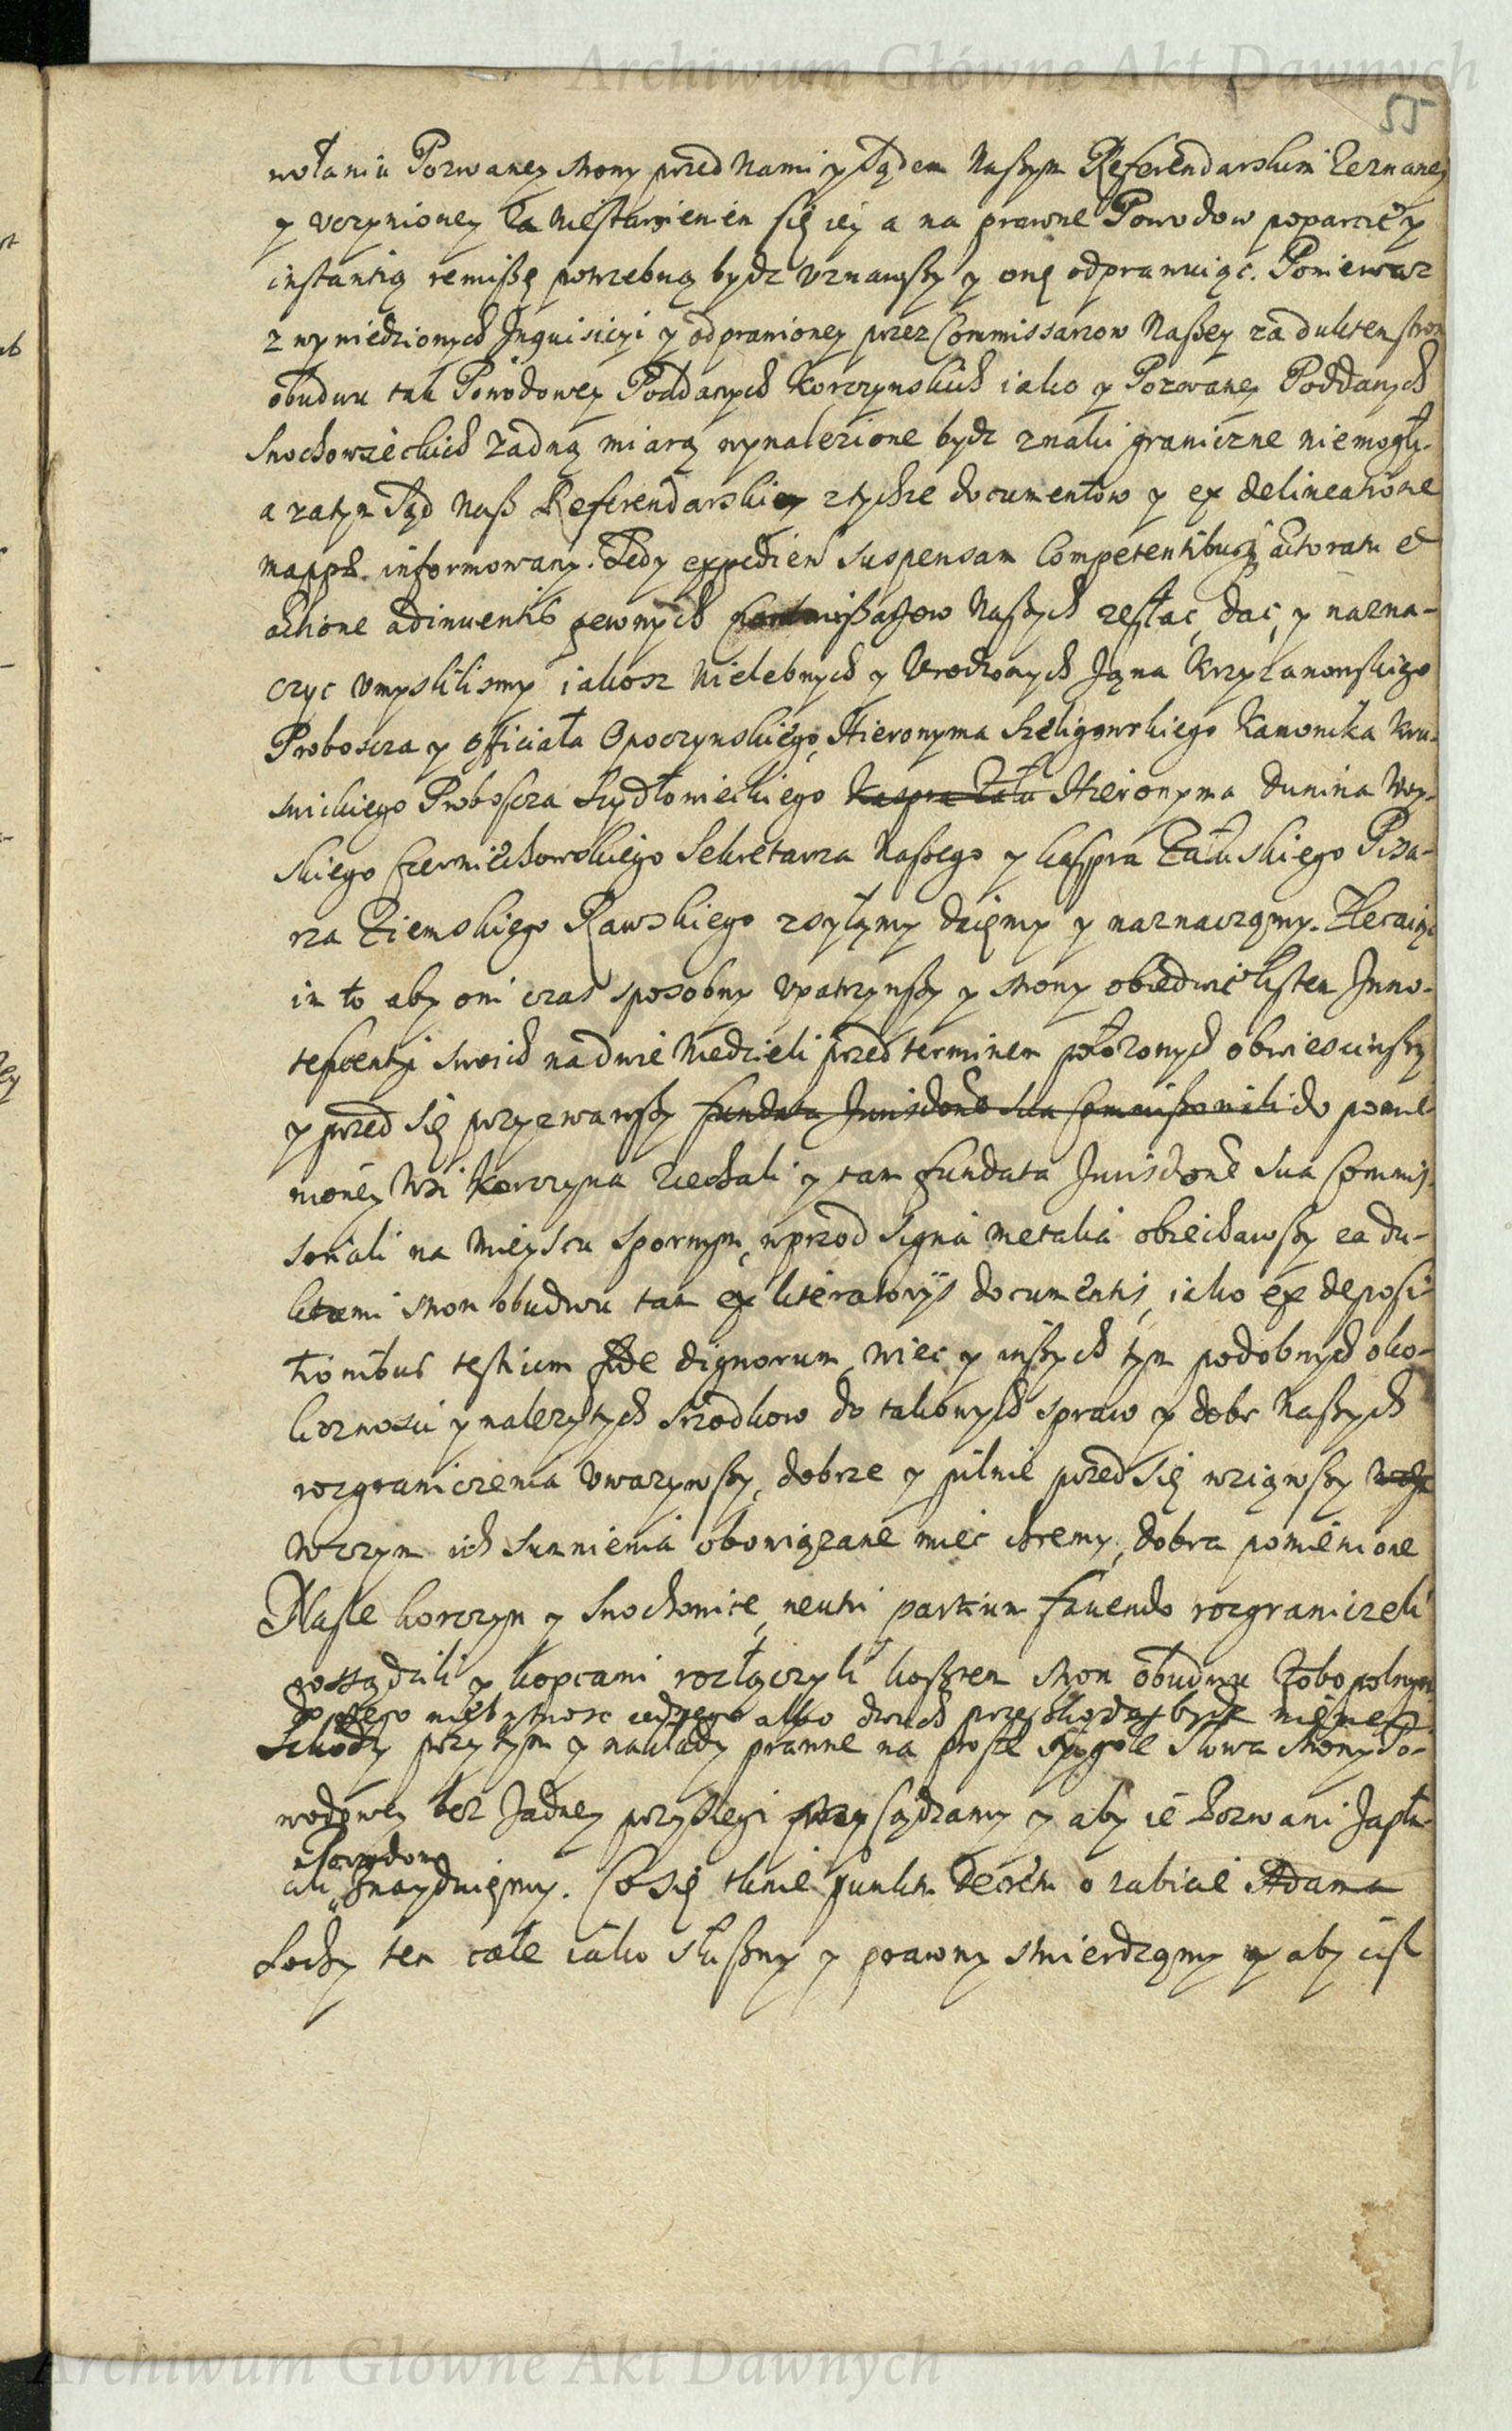 Archiwum Główne Akt Dawnych
55
wołaniu Pozwaney strony przed Nami y Sądem Naszym Referendarskim Zeznaney
y vczynioney Za Niestawieniem się iey a na prawne Powodow poparcie y
instantią remissę potrzebną bydz vznawszy y onę odprawuiąc. Poniewasz
z wywiedzionych Inquisicyi y odprawioney przez Commissarzow Naszey za duktem stron
obudwu tak Powodowey Poddanych Korczynskich iako y Pozwaney Poddanych
Snochowieckich żadną miarą wynalezione bydz znaki graniczne niemogły.
a zatym Sąd Nasz Referendarski z tychże documentow y ex delineatione
mappæ informowany. Tedy suspensam Competentibus actoratu et
actione adinventis pewnych Commissarzow Naszych zesłac, dac, y nazna-
czyc vmyslilismy iakosz Wielebnych y Vrodzonych Jana Krzyzanowskiego
Proboscza y Officiała Opoczynskiego, Hieronyma Szeligowskiego Kanonika Kru-
swickiego Proboszcza Szydłowieckiego Kaspra Zału Hieronyma Dunina Woy-
skiego Czerniechowskiego Sekretarza Naszego y Kaspra Załuskiego Pisa-
rza Ziemskiego Rawskiego zsyłamy daiemy y naznaczamy. Zlecaiąc
im to aby oni czas sposobny vpatrzywszy y strony obiedwie listem Inno-
tescentyi swoich na dwie Niedzieli przed terminem połozonych obwiesciwszy
y przed się przyzwawszy fundata Jurisdone sua Commissoriali do pomie-
nioney Wsi Korczyna Ziechali y tam fundata Jurisdone sua Commis-
soriali na mieyscu spornym, wprzod signa metalia obiechawszy za du-
ktami stron obudwu tam ex literatoriis documentis, iako ex deposi-
tionibus testium fide dignorum, wiec y inszych tym podobnych oko-
licznosci y nalezytych srzodkow do takowych spraw y dobr Naszych
rozgraniczenia vwazywszy, dobrze y pilnie przed się wziąwszy
w czym ich sumnienia obowiązane miec chcemy, dobra pomienione
Nasze Korczyn y Snochowice, neutri partium favendo rozgraniczeli
rossądzili y kopcami rozłączyli kosztem stron obudwu Zobopolnym
do czego niebytnosc iednego albo dwuch przeszkodą bydz niema
Szkody przytym y nakłady prawne na proste gołe słowa strony Po-
wodowey bez Jadney przysięgi przysądzamy y aby ie Pozwani Zapła-
Powodom
cili Znayduiemy. Co się tknie punktu Decretu o zabicie Adama
Sochy ten cale iako słuszny y prawny stwierdzamy y aby iusz
Archiwum Główne Akt Dawnych